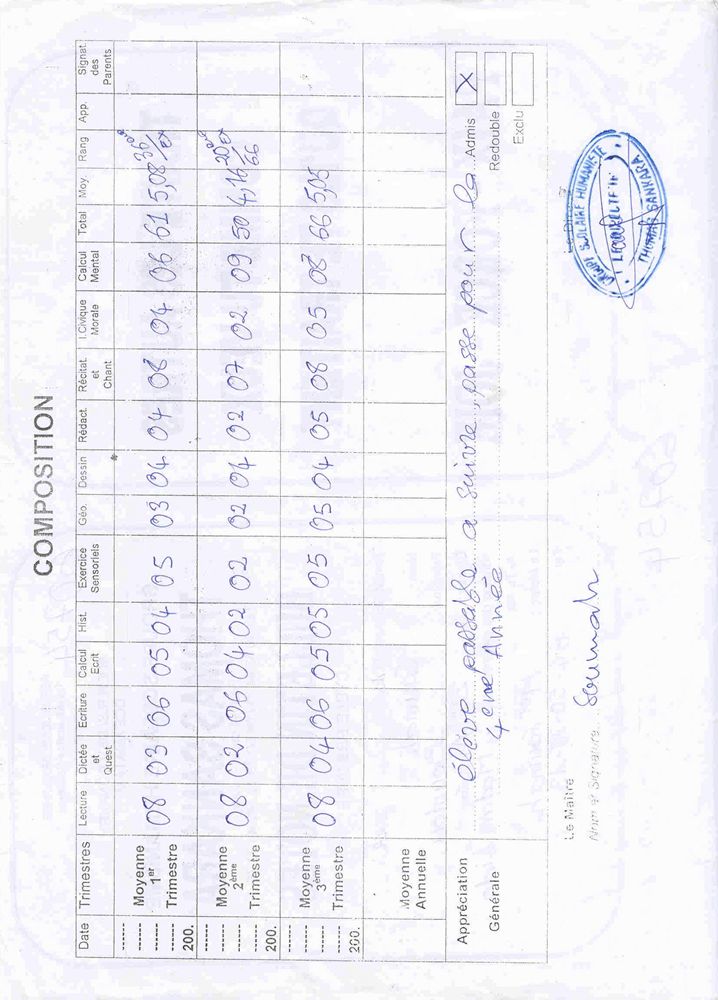 COMPOSITION
Date Trimestres Lecture Dictée et Quest. Ecriture Calcul Ecrit Hist. Exercice Sensoriels Géo. Dessin Rédact. Récitat. et Chant I.Civique Morale Calcul Mental Total Moy. Rang App. Signat. des Parents
200. Moyenne 1er Trimestre 08 03 06 05 04 05 03 04 04 08 04 06 61 5,08
200. Moyenne 2ème Trimestre 08 02 06 04 02 02 02 04 02 07 02 09 50 4,16 20 ex 66
200. Moyenne 3ème Trimestre 08 04 06 05 05 05 05 04 05 08 05 08 66 5,05
Moyenne Annuelle
Appréciation Générale
élève passable a suivre, passe pour la
4eme Année
Admis X
Redouble
Exclu
Le Maître
Nom et Signature
Soumah
GROUPE SCOLAIRE HUMANISTE
THOMAS SANKARA